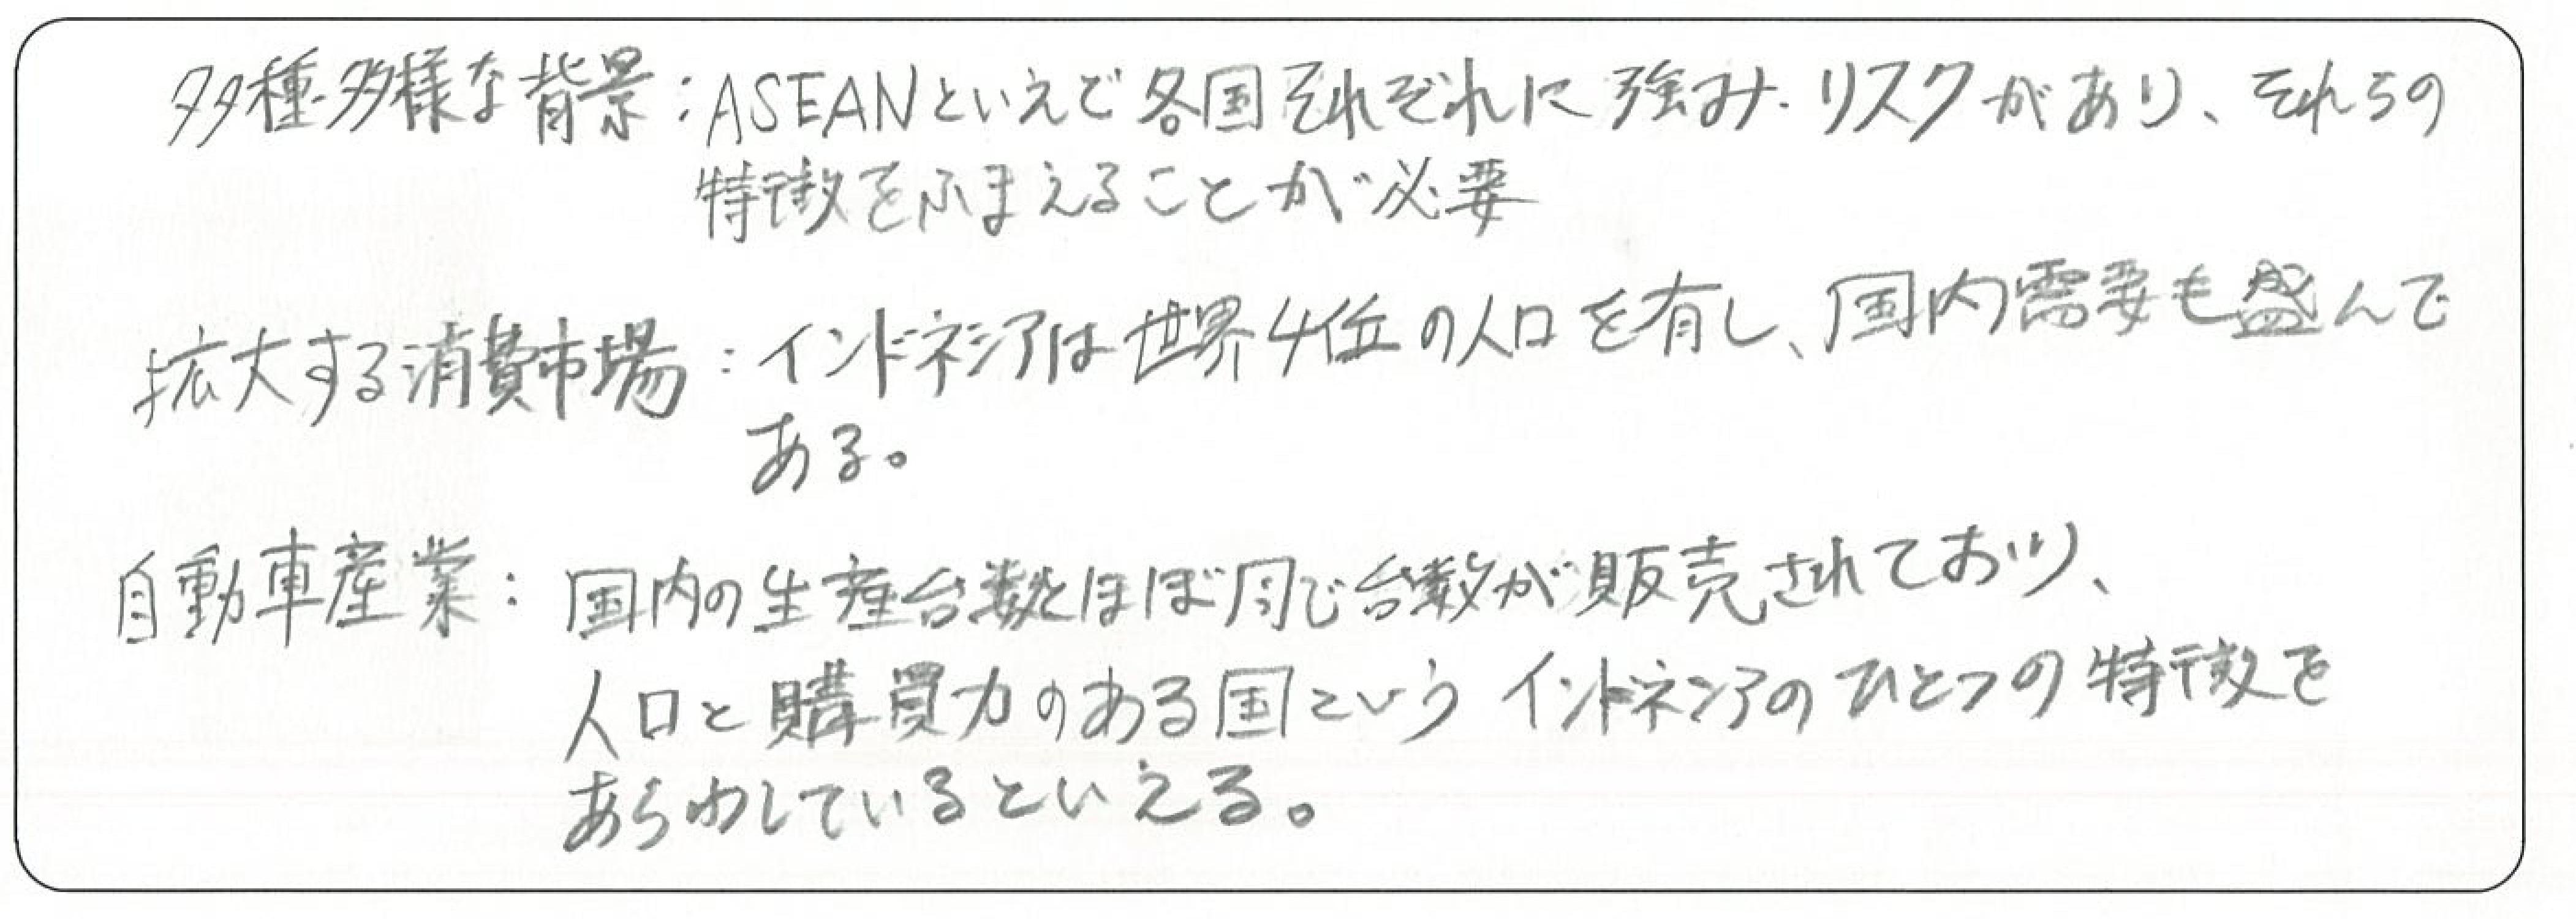 多種多様な背景：ASEANといえど各国それぞれに強み・リスクがあり、それらの
特徴をふまえることが必要
拡大する消費市場：インドネシアは世界4位の人口を有し、国内需要も盛んで
ある。
自動車産業：国内の生産台数とほぼ同じ台数が販売されており、
人口と購買力のある国というインドネシアのひとつの特徴を
あらわしているといえる。